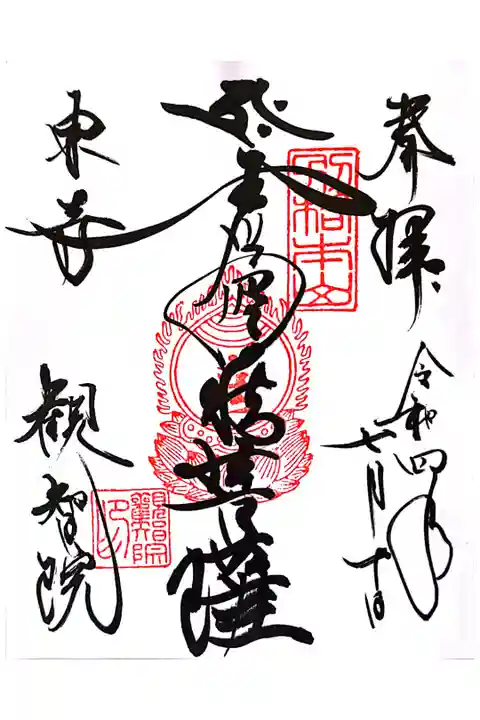 奉拝
令和四年
七月十日
別格本山
五大虚空蔵菩薩
東寺
觀智院
觀智院印